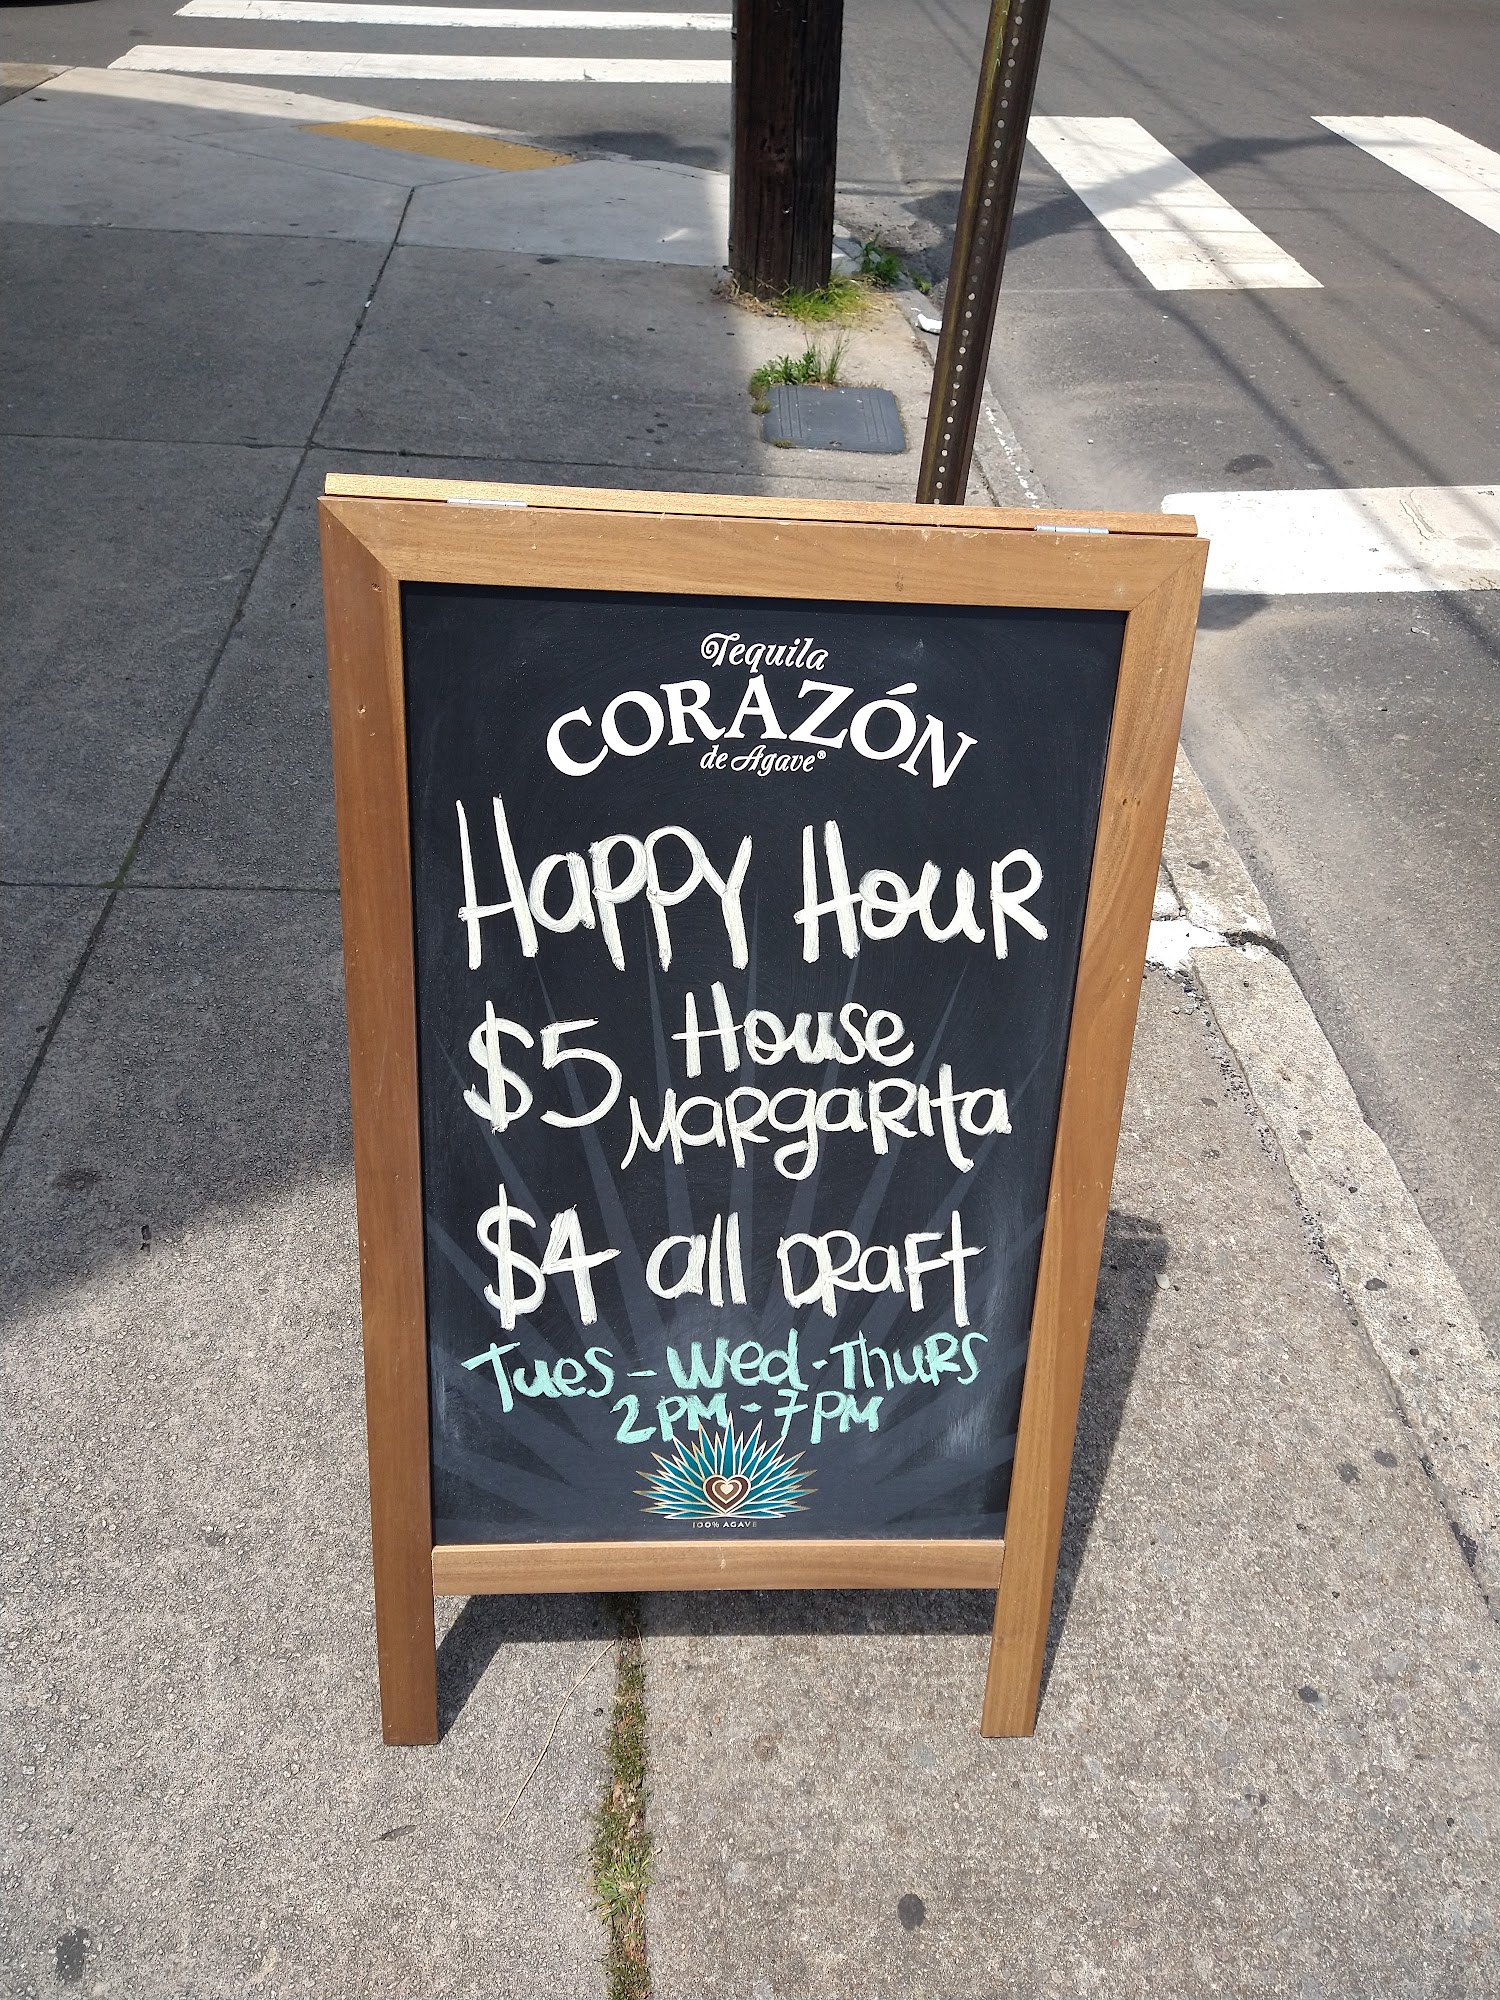 Tequila
CORAZÓN
de Agave®
Happy Hour
$5 House
Margarita
$4 all Draft
Tues - Wed - Thurs
2PM - 7PM
100% AGAVE